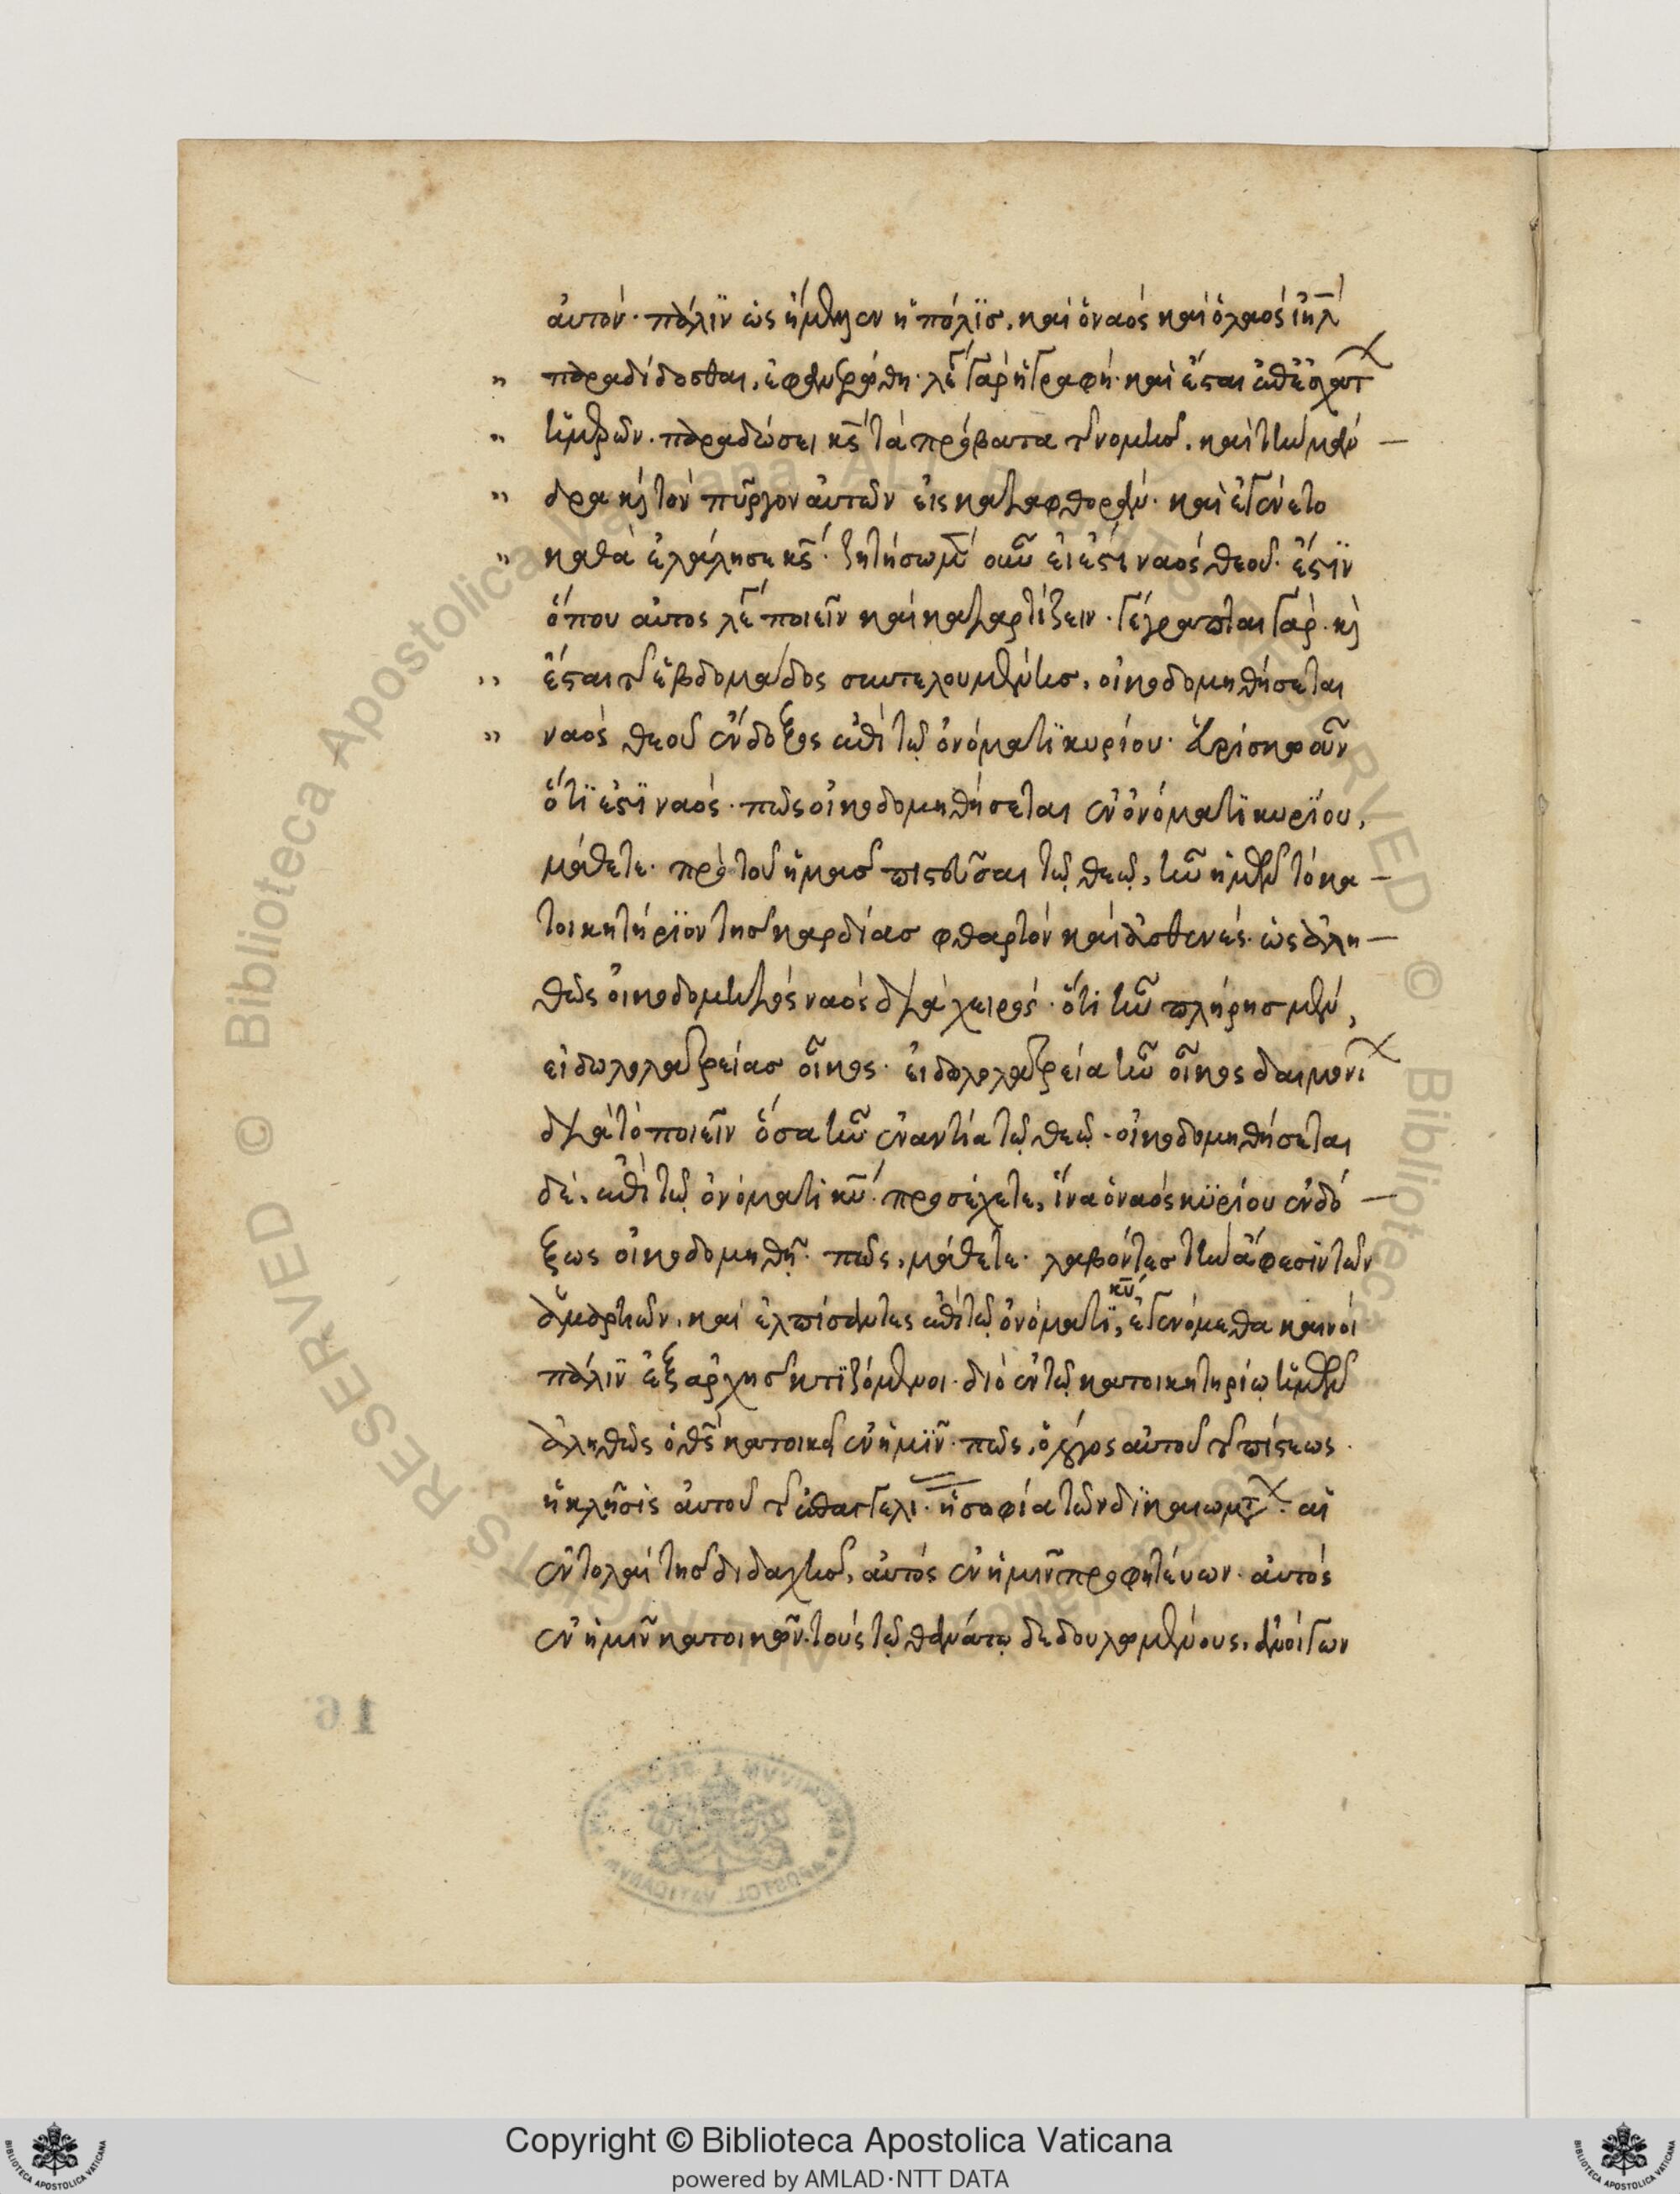 αὐτόν· πάλϊν ὡς ἤμελλεν ἡ πόλϊσ, καὶ ὁ ναὸς καὶ ὁ λαὸς ἰη̅λ
παραδίδοσθαι, ἐφανερώθη· λέγει γὰρ ἡ γραφή· καὶ ἔσται ἐπ' ἐσχάτων
τῶν ἡμερῶν. παραδώσει κ̅ς τὰ πρόβατα τῆς νομῆσ, καὶ τὴν μάν
δρα κ̀ τὸν πύργον αὐτῶν εἰς καταφθοράν· καὶ ἐγένετο
καθὰ ἐλάλησε κ̅ς· ζητήσωμεν οὖν εἰ ἔστι ναὸς θεοῦ· ἔστϊν
ὅπου αὐτος λέγει ποιεῖν καὶ καταρτίζειν· γέγραπται γάρ· κ̀
ἔσται τῆς ἑβδομάδος συντελουμένησ, οἰκοδομηθήσεται
ναὸς θεοῦ ἐνδόξως ἐπὶ τῷ ὀνόματϊ κυρίου· εὑρίσκω οὖν
ὅτϊ ἔστϊ ναός· πῶς οἰκοδομηθήσεται ἐν ὀνόματϊ κυρϊου,
μάθετε· πρὸ τοῦ ἡμασ πιστεῦσαι τῷ θεῷ, ἦν ἡμῶν τὸ κα
τοικητήρϊον τησ καρδίασ φθαρτὸν καὶ ἀσθενές· ὡς ἀλη
θῶς οἰκοδομητὸς ναὸς διὰ χειρός· ὅτι ἦν πλήρησ μὲν,
εἰδωλολατρείασ οἶκος· εἰδωλολατρεία ἦν οἶκος δαιμονίων
διὰ τὸ ποιεῖν ὅσα ἦν ἐναντία τῷ θεῷ· οἰκοδομηθήσεται
δὲ, ἐπὶ τῷ ὀνόματι κ̅υ· προσέχετε, ἵνα ὁ ναὸς κϋρίου ἐνδό
ξως οἰκοδομηθῇ· πῶς, μάθετε· λαβόντεσ τὴν ἄφεσϊν τῶν
ἁμαρτιῶν, καὶ ἐλπίσαντες ἐπὶ τῷ ὀνόματϊ κ̅υ, ἐγενόμεθα καινοὶ
πάλϊν ἐξ αρχησ κτϊζόμενοι· διὸ ἐν τῷ κατοικητηρίῳ ἡμῶν
ἀληθῶς ὁ θ̅ς κατοικεῖ ἐν ἡμϊν· πῶς, ὁ λόγος αὐτοῦ τῆς πίστεως·
ἡ κλῆσϊς αὐτοῦ τῆς ἐπαγγελι· ἡ σοφία τῶν δϊκαιωμάτων· αἱ
ἐντολαὶ τησ διδαχῆσ, αὐτὸς ἐν ἡμῖν προφητέυων· αὐτὸς
ἐν ἡμῖν κατοικῶν· τοὺς τῷ θανάτῳ δεδουλωμένους, ἀνοίγων
16
Copyright © Biblioteca Apostolica Vaticana
powered by AMLAD·NTT DATA